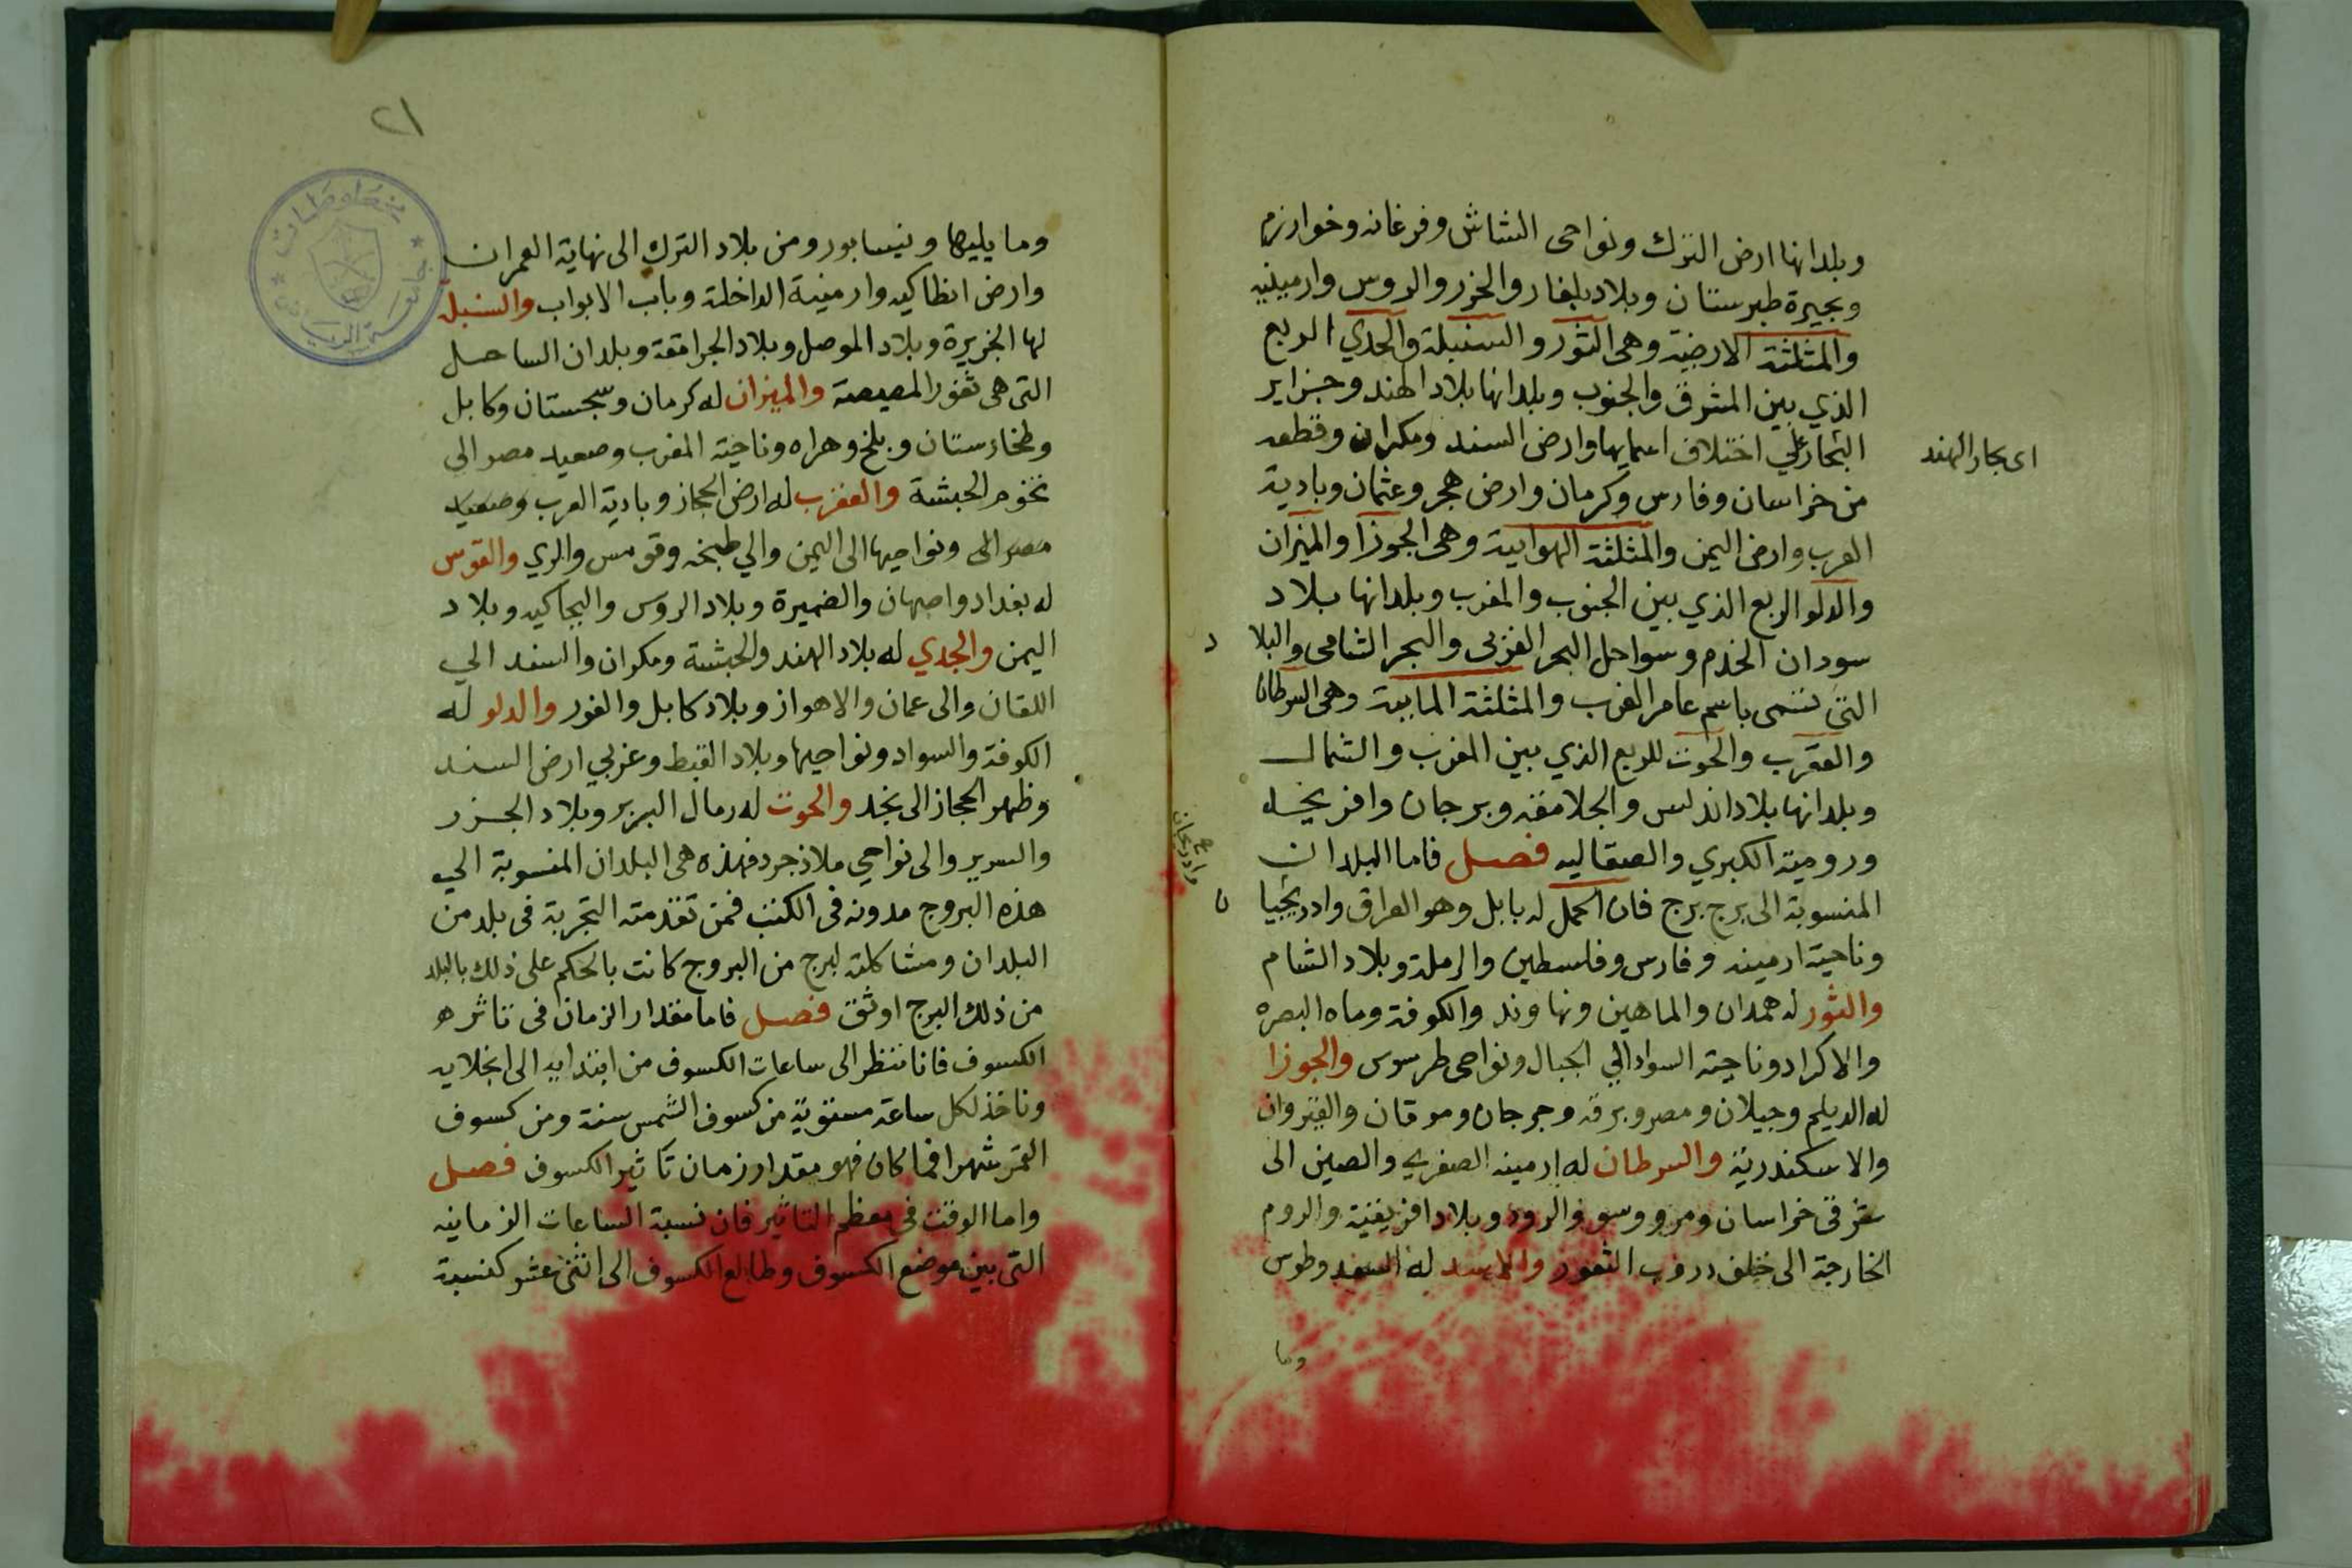 وبلدانها ارض الترك ونواحى الشاش وفرغانه وخوارزم
وبحيرة طبرستان وبلاد بلغار والخزر والروس وارمينيه
والمثلثة الارضية وهى الثور والسنبلة والجدي الربع
الذي بين المشرق والجنوب وبلدانها بلاد الهند وجزاير
البحار على اختلاف اسمايها وارض السند ومكران وقطعه
اى بحار الهند
من خراسان وفارس وكرمان وارض هجر وعثمان وبادية
العرب وارض اليمن والمثلثة الهوايية وهى الجوزا والميزان
والدلو الربع الذي بين الجنوب والمغرب وبلدانها بلاد
سودان الخدم وسواحل البحر الغربى والبحر الشامى والبلا د
التي تسمى باسم عامر الغرب والمثلثة المايية وهى السرطان
والعقرب والحوت للربع الذي بين المغرب والشمال
وبلدانها بلاد اندلس والجلامقه وبرجان وافرنجه
ورومية الكبري والصقاليه فصل فاما البلدان
المنسوبة الى برج برج فان الحمل له بابل وهو العراق وادربيجا ن
وناحية ارمينه وفارس وفلسطين والرملة وبلاد الشام
والثور له همدان والماهين ونهاوند والكوفة وماه البصره
والاكراد وناحية السواد الي الجبال ونواحى طرسوس والجوزا
له الديلم وجيلان ومصر وبرقه وجرجان وموقان والقيروان
والاسكندرية والسرطان له ارمينه الصغري والصين الى
شرقى خراسان ومرو والروذ وبلاد افريقية والروم
الخارجة الى خلف دروب الثغور والاسد له السغد وطوس
وما
٢١
وما يليها ونيسابور ومن بلاد الترك الى نهاية العمران
وارض انطاكيه وارمينية الداخلة وباب الابواب والسنبله
لها الجزيرة وبلاد الموصل وبلاد الجرامقة وبلدان الساحل
التى هى ثغور المصيصة والميزان له كرمان وسجستان وكابل
وطخارستان وبلخ وهراه وناحية المغرب وصعيد مصر الى
تخوم الحبشة والعقرب له ارض الحجاز وبادية العرب وصعيد
مصر الى ونواحيها الى اليمن والي طنجه وقومس والري والقوس
له بغداد واصبهان والضميرة وبلاد الروس والبجاكيه وبلاد
اليمن والجدي له بلاد الهند والحبشة ومكران والسند الي
اللقان والى عمان والاهواز وبلاد كابل والغور والدلو له
الكوفة والسواد ونواحيها وبلاد القبط وغربي ارض السند
وظهر الحجاز الى نجد والحوت له رمال البربر وبلاد الجزر
والسرير والى نواحي ملازجرد فهذه هى البلدان المنسوبة الي
هذه البروج مدونه فى الكتب فمن تقدمته التجربة فى بلد من
البلدان ومشاكلته لبرج من البروج كانت بالحكم على ذلك بالبلد
من ذلك البرج اوثق فصل فاما مقدار الزمان فى تاثره
الكسوف فانا ننظر الى ساعات الكسوف من ابتدايه الى انجلايه
وناخذ لكل ساعة مستوية من كسوف الشمس سنة ومن كسوف
القمر شهرا فما كان فهو مقدار زمان تاثير الكسوف فصل
واما الوقت في معظم التاثير فان نسبة الساعات الزمانيه
التى بين موضع الكسوف وطالع الكسوف الى اثنى عشر كنسبة